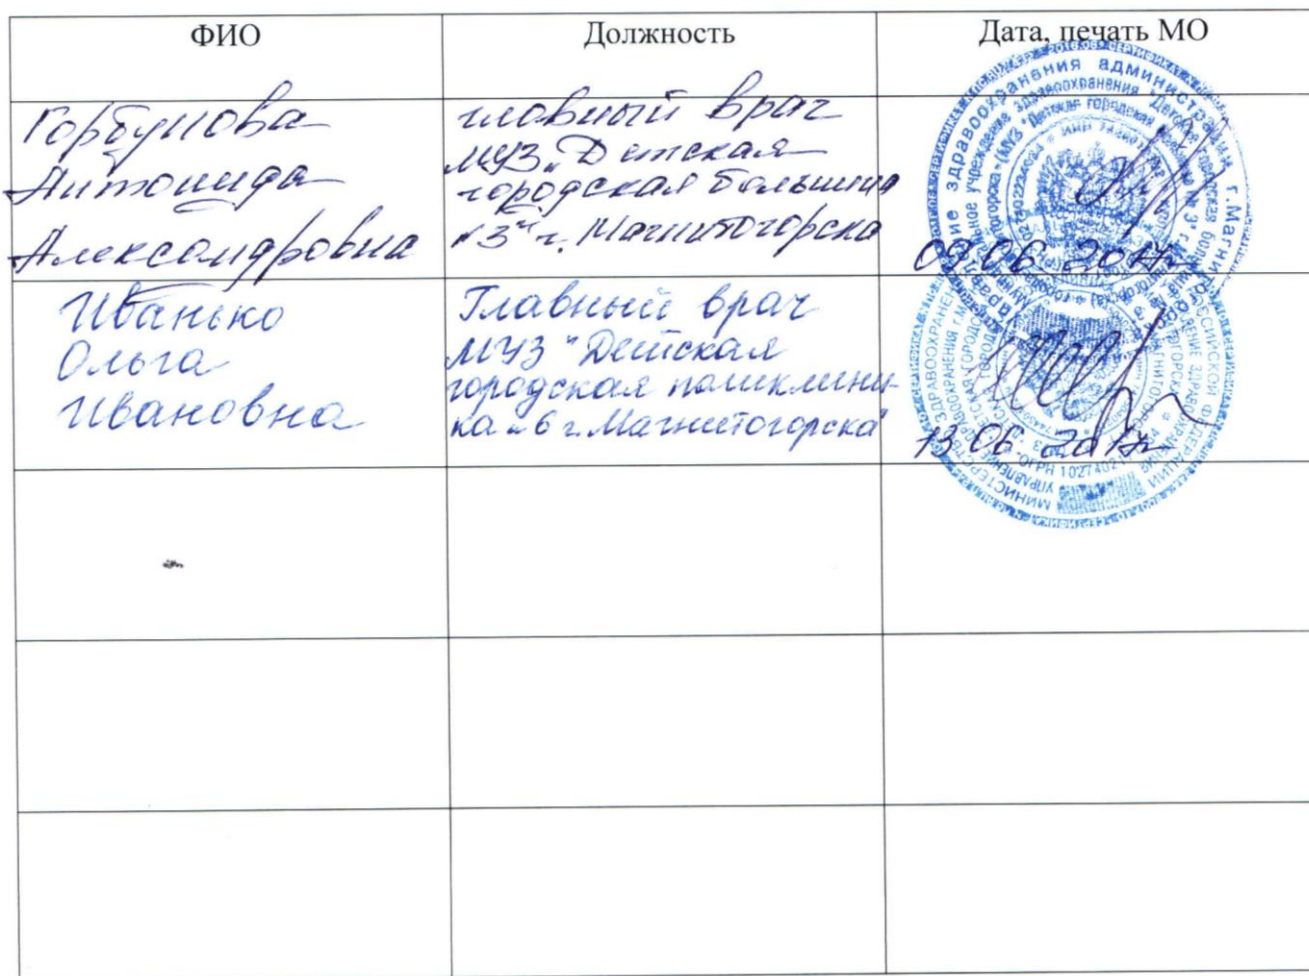 ФИО Должность Дата, печать МО
Горбунова
Антонида
Александровна
главный врач
МУЗ „Детская
городская больница
№3" г. Магнитогорска
09.06.2017г
Иванько
Ольга
Ивановна
Главный врач
МУЗ "Детская
городская поликлини-
ка №6 г. Магнитогорска"
13.06.2017г